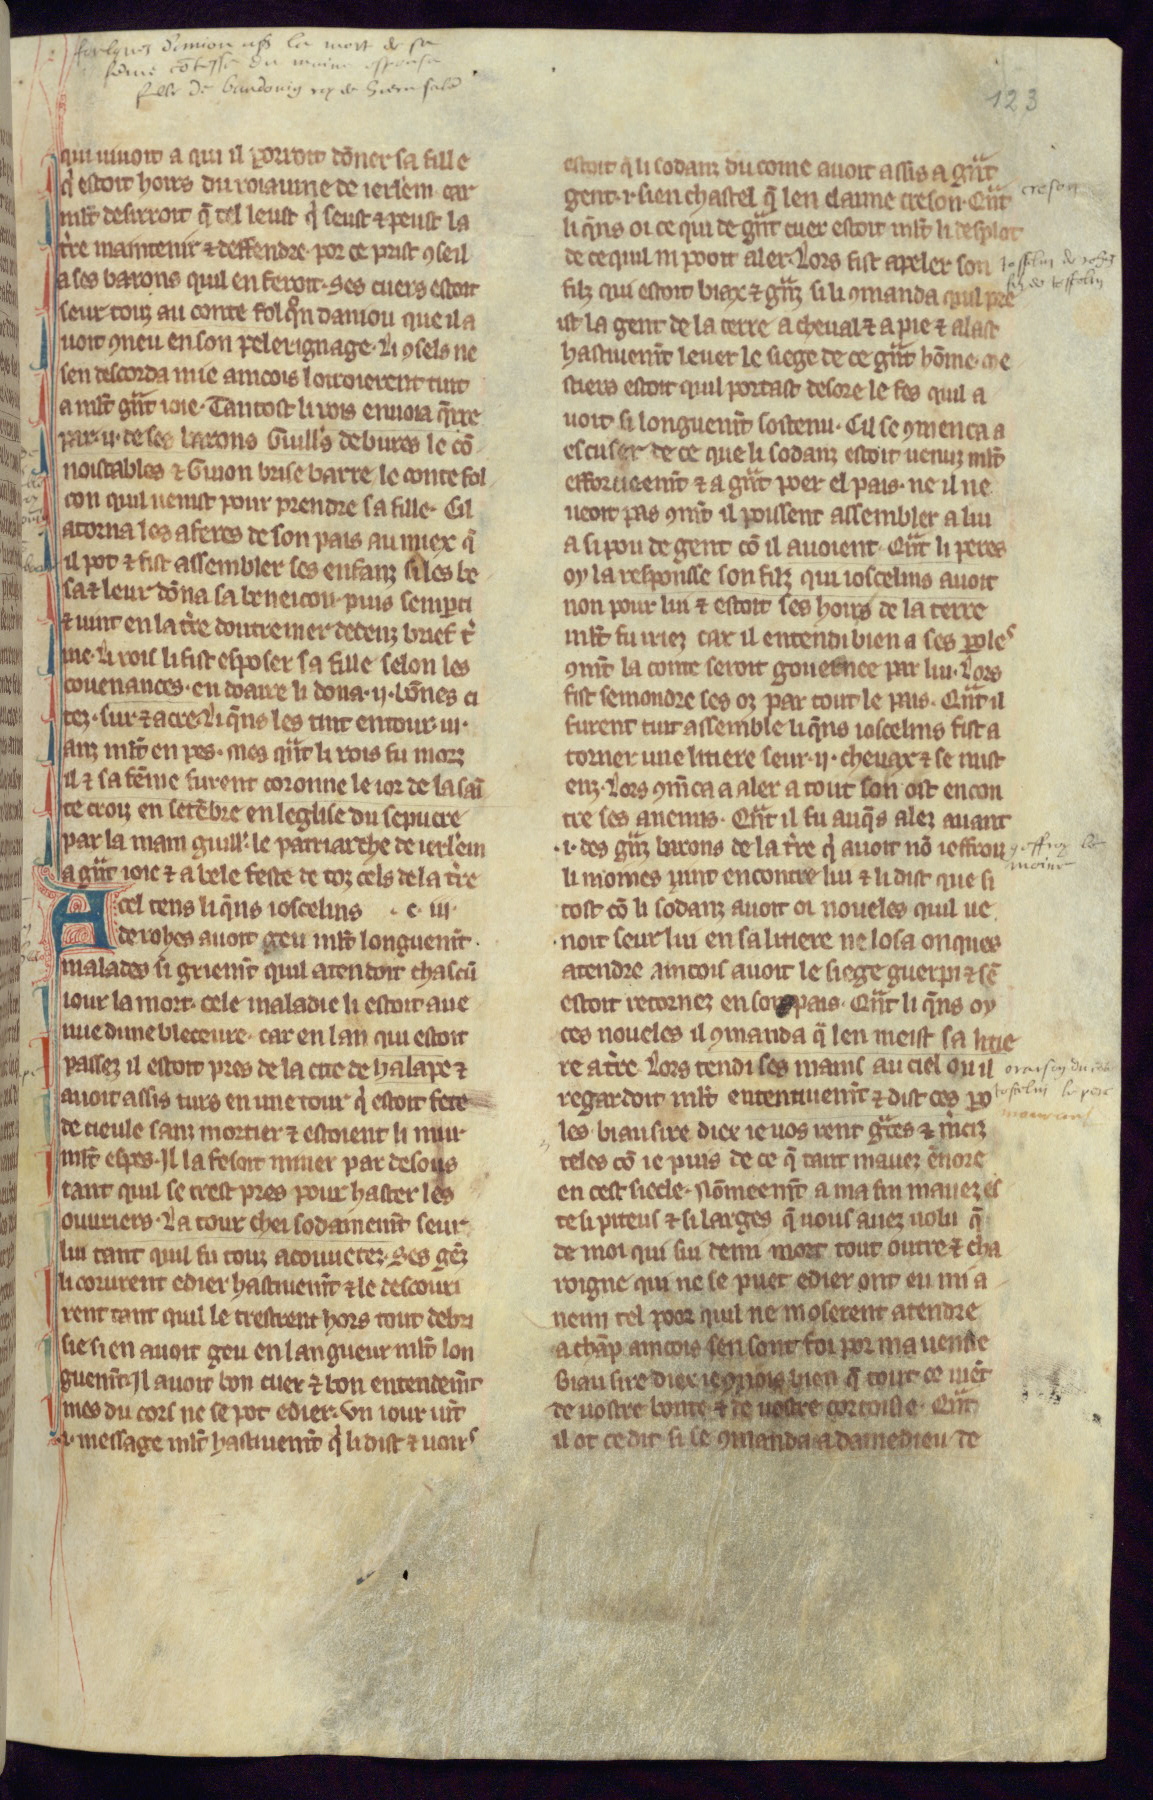 foulques d'aniou aps la mort de sa
feme cōtesse du maine espousa
fille de baudouin roy de hierusalē
123
qui uiuoit a qui il porroit dōner sa fille
q̄ estoit hoirs du roiaume de ierl'em. car
ml't desirroit q̄ tel leust qi seust ⁊ peust la
t're maintenir ⁊ deffendre. por ce prist ꝯseil
a ses barons quil en feroit. Ses cuers estoit
seur touz au conte folq̄n daniou que il a
uoit ꝯneu en son pelerignage. Li ꝯsels ne
sen descorda mie aincois loitroierent tuit
a ml't g̃nt ioie. Tantost li rois enuoia q̄rre
par .ii. de ses barons Guill's de bures le cō
noistables ⁊ Guion brise barre le conte fol
con quil uenist pour prendre sa fille. Cil
atorna les aferes de son pais au miex q̄
il pot ⁊ fist assembler ses enfanz si les be
sa ⁊ leur dōna sa beneicon. puis sen parti
⁊ uint en la t're doutremer dedenz brief t'
me. Li rois li fist esposer sa fille selon les
couenances. en doaire li dona .ii. bōnes ci
tez. sur ⁊ acre. Li q̄ns les tint entour .iii.
anz ml't en pes. Mes q̃nt li rois fu morz
il ⁊ sa feme furent coronne le ior de la sai
te croiz en setēbre en leglise du sepucre
par la main guill'. le patriarche de ierl'em
a g̃nt ioie ⁊ a bele feste de toz cels de la t're
A cel tens li q̄ns ioscelins . c. iii.
de rohes auoit geu ml't longuem̄t.
malades si griem̄t quil atendoit chascū
iour la mort. cele maladie li estoit aue
nue dune bleceure. car en lan qui estoit
passez il estoit pres de la cite de halape ⁊
auoit assis turs en une tour q̄ estoit fete
de tieule sanz mortier ⁊ estoient li mur
ml't espes. Il la fesoit miner par desous
tant quil se trest pres pour haster les
ouuriers. La tour chei sodainem̄t seur
lui tant quil fu touz acouuetez. Ses gēz
li corurent edier hastiuem̄t ⁊ le descouri
rent tant quil le trestrent hors tout debri
sie si en auoit geu en langueur ml't lon
guem̄t. Il auoit bon cuer ⁊ bon entendem̄t
mes du cors ne se pot edier. Vn iour uīt
.i. message ml't hastiuem̄t qi li dist ⁊ uoirs
estoit q̄ li sodanz du come auoit assis a g̃nt
gent .i. sien chastel q̄ len claime creson. Q̃nt
li q̄ns oi ce qui de g̃nt cuer estoit ml't li desplot
de ce quil ni pooit aler. Lors fist apeler son
filz qui estoit biax ⁊ g̃nz si li ꝯmanda quil pre
ist la gent de la terre a cheual ⁊ a pie ⁊ alast
hastiuem̄t leuer le siege de ce g̃nt hōme. me
stiers estoit quil portast desore le fes quil a
uoit si longuem̄t sostenu. Cil se ꝯmenca a
escuser de ce que li sodanz estoit uenuz ml't
efforcieem̄t ⁊ a g̃nt poer el pais. ne il ne
ueoit pas ꝯm̄t il poissent assembler a lui
a si pou de gent cō il auoient. Q̃nt li peres
oy la responsse son filz qui ioscelins auoit
non pour lui ⁊ estoit ses hoirs de la terre
ml't fu iriez car il entendi bien a ses ꝑoles
ꝯm̄t la conte seroit gouernee par lui. Lors
fist semondre ses oz par tout le pais. Q̃nt il
furent tuit assemble li q̄ns ioscelins fist a
torner une litiere seur .ii. cheuax ⁊ se mist
enz. Lors ꝯm̄ca a aler a tout son ost encon
tre ses anemis. Q̃nt il fu auq̄s alez auant
.i. des g̃nz barons de la t're qi auoit nō ieffroi
li moines uint encontre lui ⁊ li dist que si
tost cō li sodanz auoit oi noueles quil ue
noit seur lui en sa litiere ne losa onques
atendre aincois auoit le siege guerpi ⁊ sē
estoit retornez en son pais. Q̃nt li q̄ns oy
ces noueles il ꝯmanda q̄ len meist sa litie
re a t're. Lors tendi ses mains au ciel ou il
regardoit ml't ententiuem̄t ⁊ dist ces ꝑo
les. biau sire diex ie uos rent g̃ces ⁊ m̄ciz
teles cō ie puis de ce q̄ tant mauez ēnore
en cest siecle. Nōmeem̄t a ma fin mauez es
te si piteus ⁊ si larges q̄ uous auez uolu q̄
de moi qui sui demi mort tout outre ⁊ cha
roigne qui ne se puet edier ont eu mi a
nemi tel poor quil ne moserent atendre
a chāp aincois sen sont foi por ma uenue
Biau sire diex ie ꝯnois bien q̄ tout ce uiēt
de uostre bonte ⁊ de uostre cortoisie. Q̃nt
il ot ce dit si se ꝯmanda a damedieu de
creson
ieffroy le
moine
oraison du cōte
iosselin le pere
mourant